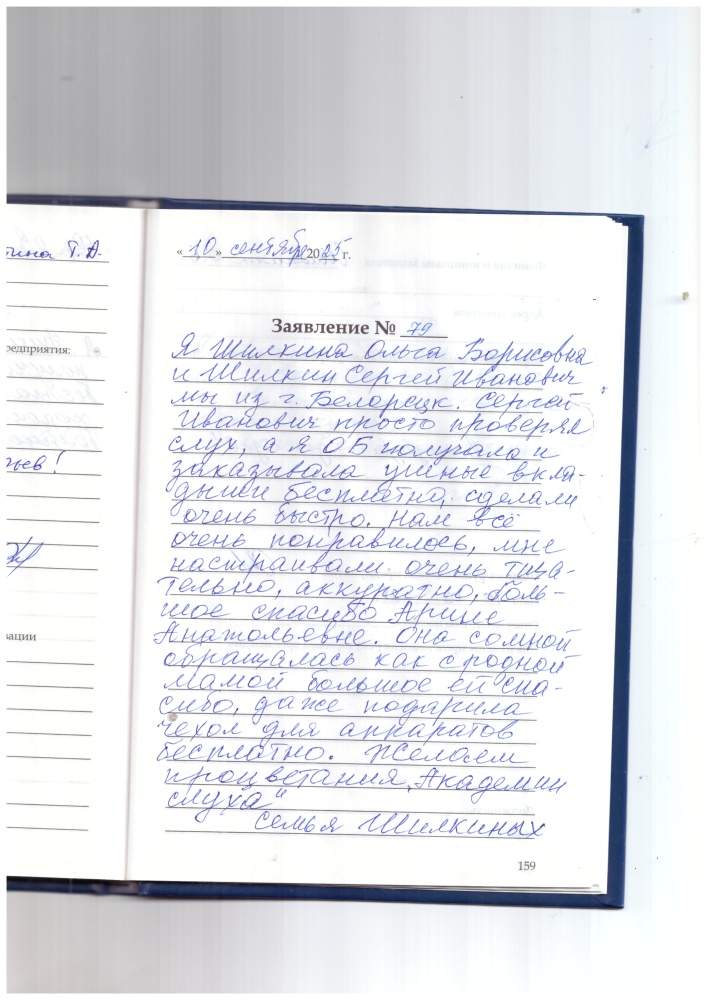 тина Т. А.
редприятия:
ьев!
зации
« 10 » сентября 20 25 г.
Заявление № 79
Я Шилкина Ольга Борисовна
и Шилкин Сергей Иванович
мы из г. Белорецк. Сергей
Иванович просто проверял
слух, а я ОБ получала и
заказывала ушные вкла-
дыши бесплатно, сделали
очень быстро. Нам всё
очень понравилось, мне
настраивали очень тща-
тельно, аккуратно, боль-
шое спасибо Арине
Анатольевне. Она со мной
обращалась как с родной
мамой большое ей спа-
сибо, даже подарила
чехол для аппаратов
бесплатно. Желаем
процветания „Академии
слуха"
Семья Шилкиных
159